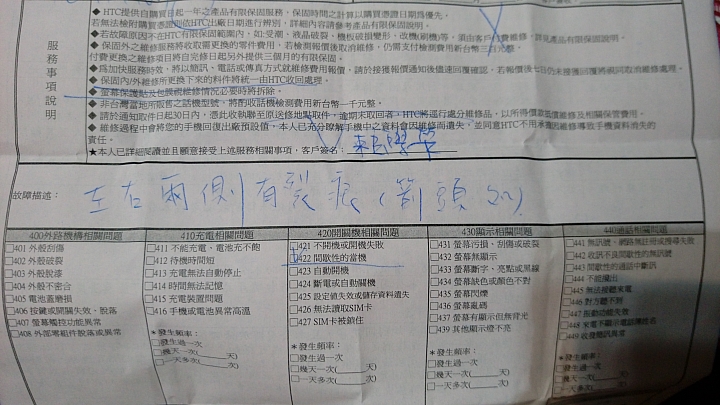 服務事項說明
◆ HTC提供自購買日起一年之產品有限保固服務，保固時間之計算以購買憑證日期為優先。
若無法檢附購買憑證則依HTC出廠日期進行辨別，詳細內容請參考產品有限保固說明。
◆ 若故障原因不在HTC有限保固範圍內，如:受潮、液晶破裂、機板破損變形、改機(刷機)等，須由客戶付費維修，詳見產品有限保固說明。
◆ 保固外之維修服務將收取需更換的零件費用，若檢測報價後取消維修，仍需支付檢測費用新台幣
付費更換之維修項目將自完修日起另外提供三個月的有限保固。
◆ 為加快服務時效，將以簡訊、電話或傳真方式就維修費用報價，請於接獲報價通知後儘速回覆確認，若報價後七日仍未獲得回覆將視同取消維修處理。
◆ 保固內/外維修所更換下來的料件將統一由HTC收回處理。
◆ 螢幕保護貼及包膜視維修情況必要時將拆除。
◆ 非台灣當地所販售之話機型號，將酌收話機檢測費用新台幣一千元整。
◆ 請於通知取件日起30日內，憑此收執聯至原送修地點取件，逾期未取回者，HTC將逕行處分維修品，以所得價款抵償維修及相關保管費用。
◆ 維修過程中會將您的手機回復出廠預設值，本人已充分瞭解手機中之資料會因維修而遺失，並同意HTC不用承擔因維修導致手機資料消失的
責任。
★本人已詳細閱讀並且願意接受上述服務相關事項，客戶簽名：
故障描述： 左右兩側有裂痕(箭頭處)
400外路機構相關問題
□401 外殼刮傷
□402 外殼破裂
□403 外殼脫漆
□404 外殼不密合
□405 電池蓋磨損
□406 按鍵或開關失效、脫落
□407 螢幕觸控功能異常
□408 外部零組件脫落或異常
410充電相關問題
□411 不能充電、電池充不飽
□412 待機時間短
□413 充電無法自動停止
□414 時間無法記憶
□415 充電裝置問題
□416 手機或電池異常高溫
*發生頻率：
□發生過一次
□幾天一次(____天)
□一天多次(____)
420開關機相關問題
□421 不開機或開機失敗
□422 間歇性的當機
□423 自動開機
□424 斷電或自動關機
□425 設定值失效或儲存資料遺失
□426 無法讀取SIM卡
□427 SIM卡被鎖住
*發生頻率：
□發生過一次
□幾天一次(____天)
□一天多次(____)
430顯示相關問題
□431 螢幕污損、刮傷或破裂
□432 螢幕無顯示
□433 螢幕斷字、亮點或黑線
□434 螢幕缺色或顏色不對
□435 螢幕閃爍
□436 螢幕亂碼
□437 螢幕有顯示但無背光
□439 其他顯示燈不亮
*發生頻率：
□發生過一次
□幾天一次(____天)
□一天多次(____)
440通話相關問題
□441 無訊號、網路無註冊或搜尋失敗
□442 收訊不良間歇性的無訊號
□443 間歇性的通話中斷訊
□444 不能撥出
□445 無法接聽來電
□446 對方聽不到
□447 振動功能失效
□448 來電不顯示電話簿姓名
□449 收發簡訊異常
*發生頻率：
□發生過一次
□幾天一次(____天)
□一天多次(____)